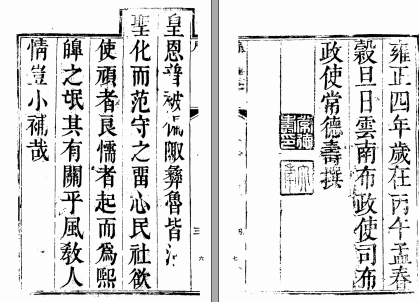 皇恩普被偏陬彝魯皆
聖化而范守之留心民社欲
使頑者良懦者起而爲熙
皥之氓其有關乎風敎人
情豈小補哉
三
六
雍正四年歲在丙午孟春
穀旦日雲南布政使司布
政使常德壽撰
七